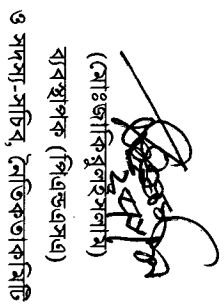 (মোঃ জাকিবুল ইসলাম)
ব্যবস্থাপক (পিএন্ডএসএ)
ও সদস্য-সচিব, নৈতিকতা কমিটি